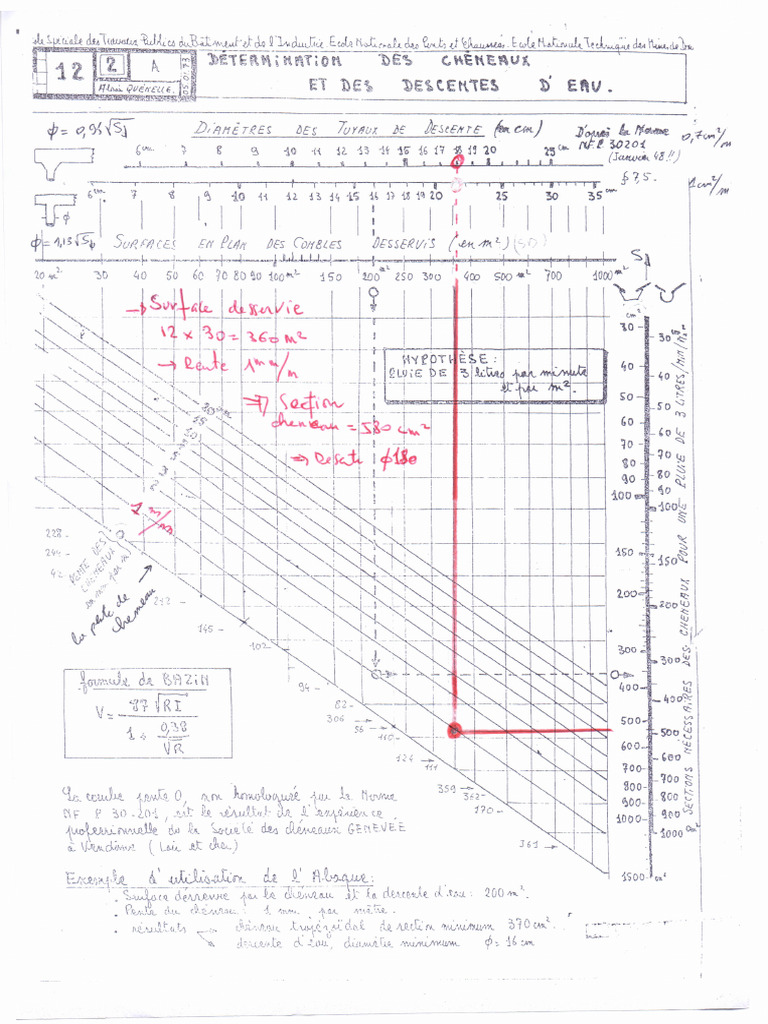 Ecole Nationale des Ponts et Chaussées. Ecole Nationale Technique des Mines de
12
2
A
Alain QUENELLE.
05 01 73
DÉTERMINATION DES CHÉNEAUX
ET DES DESCENTES D'EAU.
DIAMÈTRES DES TUYAUX DE DESCENTE (en cm)
D'après la Norme
NF P 30201
(Janvier 48 !!)
§ 7,5.
0,7cm²/m
6cm 7 8 9 10 11 12 13 14 15 16 17 18 19 20 25 cm
1cm²/m
6cm 7 8 9 10 11 12 13 14 15 16 17 18 19 20 25 30 35 cm
ϕ
SURFACES EN PLAN DES COMBLES DESSERVIS (en m²)
20 m² 30 40 50 60 70 80 90 100 m² 150 200 m² 250 300 400 500 700 1000 m²
→ Surface desservie
12 x 30 = 360 m²
→ Pente 1 mm/m
⇒ Section
cheneau = 580 cm²
⇒ Descente ϕ180
HYPOTHÈSE :
PLUIE DE 3 litres par minute
et par m².
cm²
30
40
50
60
70
80
90
100
150
200
300
400
500
600
700
800
900
1000
1500 cm²
30
40
50
60
70
80
90
100
150
200
300
400
500
700
800
900
1000
SECTIONS NÉCESSAIRES DES CHENEAUX POUR UNE PLUIE DE 3 LITRES/MN/M²
PENTE DES
CHENEAUX
la pente de
cheneau
228
212
145
102
94
82
306
56
110
124
111
359
362
170
361
formule de BAZIN
V = 87√RI
1 + 0,38
√R
La courbe pente 0, non homologuée par la Norme
NF P 30-201, est le résultat de l'expérience
professionnelle de la Société des chéneaux GENEVÉE
à Vendôme (Loir et cher)
Exemple d'utilisation de l'Abaque :
. Surface desservie par le chéneau et la descente d'eau : 200 m².
. Pente du chéneau : 1 mm. par mètre.
. résultats → chéneau trapézoïdal de section minimum 370 cm².
descente d'eau, diamètre minimum ϕ = 16 cm